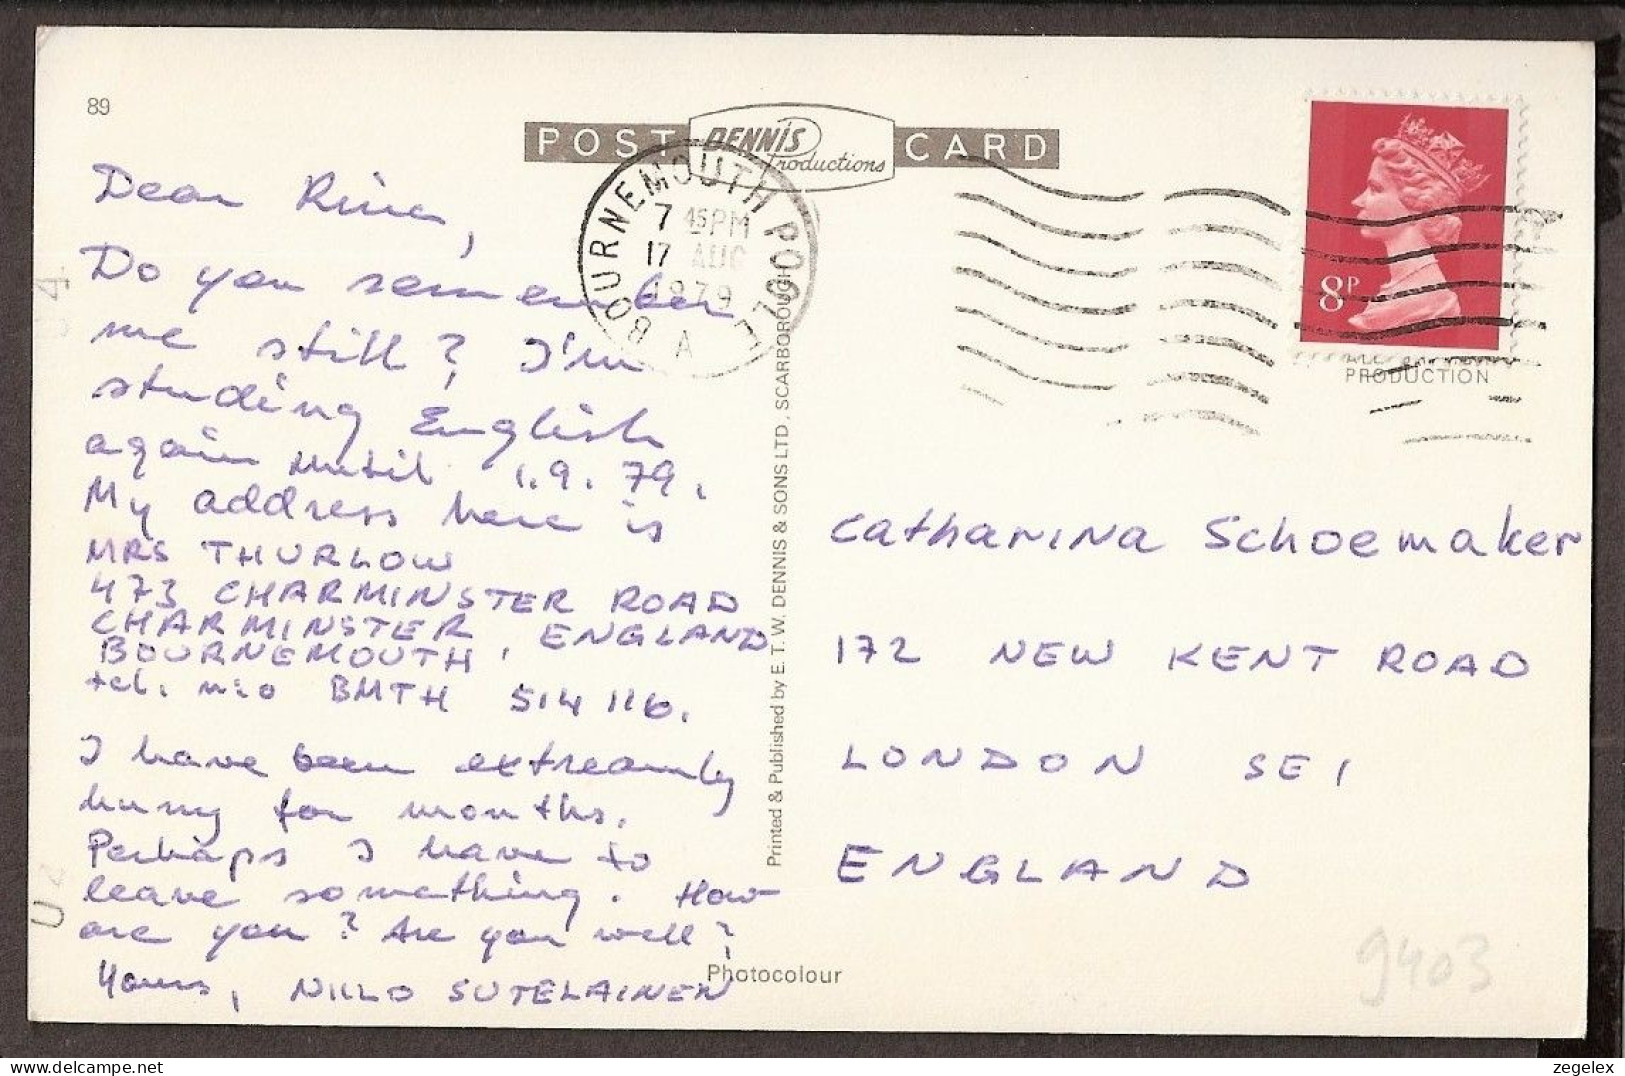 89
POST CARD
DENNIS
Productions
BOURNEMOUTH POOLE
7 45PM
17 AUG
1979
A
8P
PRODUCTION
Dear Rina,
Do you remember
me still? I'm
studing English
again until 1.9.79.
My address here is
MRS THURLOW
473 CHARMINSTER ROAD
CHARMINSTER
BOURNEMOUTH, ENGLAND
tel. n:o BMTH 514116.
I have been extreamly
hung for months.
Perhaps I have to
leave something. How
are you? Are you well?
Yours, NIILO SUTELAINEN
Printed & Published by E. T. W. DENNIS & SONS LTD. SCARBOROUGH
Catharina Schoemaker
172 NEW KENT ROAD
LONDON SE1
ENGLAND
Photocolour
9403
zegelex